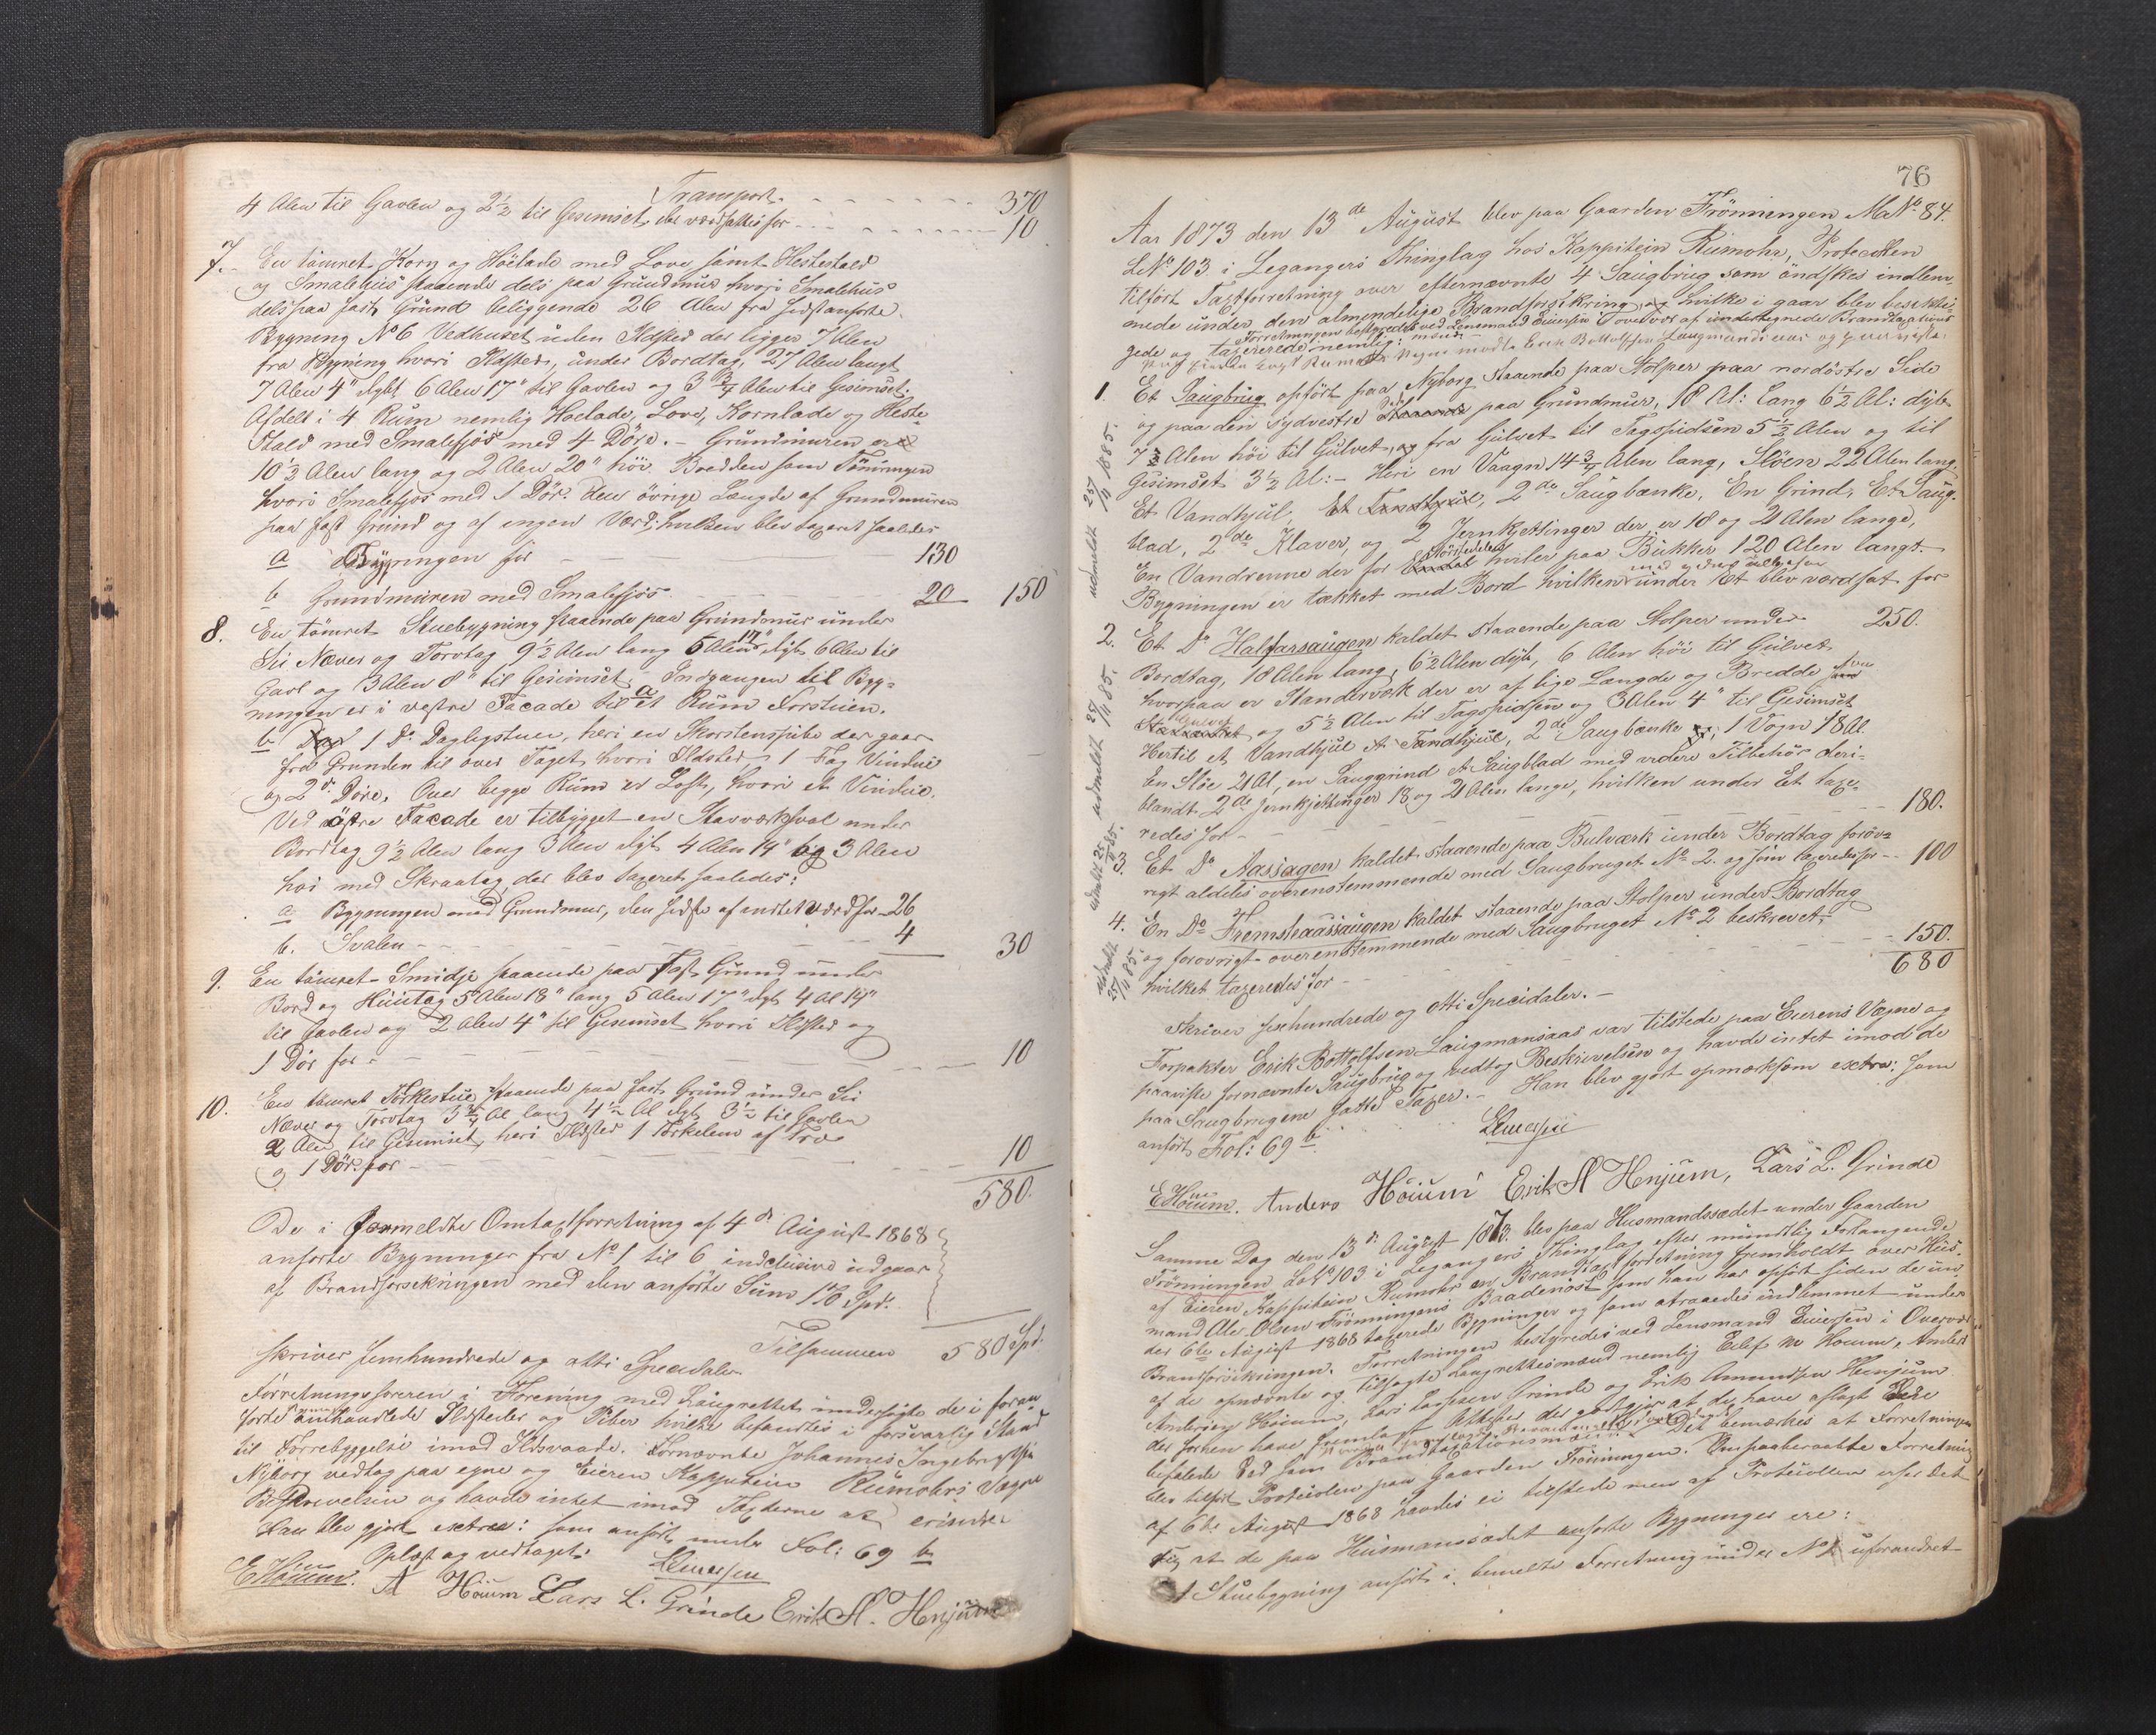 Transport 370
4 Alen til Gavlen og 2½ til Gesimset, der værdsattes for 10
7. En tömret Korn og Höelade med Love samt Hestestald
og Smalehus staaende dels paa Grundmur hvori Smalehus
dels paa fast Grund beliggende 26 Alen fra sidstanförte
Bygning No 6 Vedhuset uden Ildsted der ligger 7 Alen
fra Bygning hvori Ildsted, under Bordtag, 27 Alen langt
7 Alen 4" dybt 6 Alen 17" til Gavlen og 3¾ Alen til Gesimset.
Afdelt i 4 Rum nemlig Hoelade, Love, Kornlade og Heste-
Stald med Smalefjös med 4 Döre. – Grundmuren er
10½ Alen lang og 2 Alen 20" höi. Bredden som Tömringen
hvori Smalefjös med 1 Dör. den övrige Længde af Grundmuren
paa fast Grund og af ingen Værd; hvilken blev taxeret saaledes
a Bygningen for 130
b Grundmuren med Smalefjös 20 150
8. En tömret Stuebygning staaende paa Grundmur under
Næver og Torvtag 9½ Alen lang 5 Alen 17" dybt 6 Alen til
Gavl og 3 Alen 8" til Gesimset. Indgangen til Byg-
ningen er i vestre Facade til a et Rum Forstuen.
b 1 Do Dagligstue, heri en Skorstenspibe der gaar
fra Grunden til over Taget, hvori Ildsted, 1 Fag Vindue
og 2de Döre. Over begge Rum er Loft, hvori et Vindue.
Ved östre Facade er tilbygget en Stavværksval under
Bordtag 9½ Alen lang 3 Alen dybt 4 Alen 14" og 3 Alen
höi med Skraatag, der blev taxeret saaledes:
a Bygningen med Grundmur, den sidste af intet værd for 26
b. Svalen 4 30
9. En tömret Smidje staaende paa fast Grund under
Bord og Huntag 5 Alen 18" lang 5 Alen 17" dybt 4 Al 14"
til Gavlen og 2 Alen 4" til Gesimset hvori Ildsted og
1 Dör for 10
10. En tömret Törkestue staaende paa fast Grund under
Næver og Torvtag 5¾ Al lang 4½ Al dybt 3½ til Gavlen
2 Alen til Gesimset, heri Ildsted 1 Törkelem af Træ
og 1 Dör for 10
580.
De i formeldte Omtaxtforretning af 4de August 1868
anförte Bygninger fra No 1 til 6 inclusive udgaar
af Brandforsikringen med den anförte Sum 170 Spd.
Tilsammen 580 Spd.
skriver femhundrede og otti Speciedaler
Forretningsföreren i Forening med Laugrettet undersögte de i foran
förte omhandlede Ildsteder og Piber hvilke befandtes i forsvarlig Stand
til Forrebyggelse imod Ildsvaade. Fornævnte Johannes Ingebrigtsen
Nyborg vedtog paa egne og Eieren Kapptein Rumohrs Vegne
Beskrivelsen og havde intet imod Taxterne at erindre
Han blev gjort extra: som anfört under Fol: 69 b
Oplæst og vedtaget.
LEiversen
E Höium. A Höium Lars L. Grinde Erik A. Henjum
76
Aar 1873 den 13de August blev paa Gaarden Frönningen MaNo 84.
LNo 103 i Leganger Thinglag hos Kappitein Rumohr, Protocollen
tilfört Taxtforretning over efternævnte 4 Saugbrug som öndskes indlem-
mede under den almindelige Brandforsikring, og hvilke i gaar blev besikti-
gede og taxererede nemlig:
Forretningen bestyredes ved Lensmand Eiversen
1. Et Saugbrug opfört paa Nyborg staaende paa Stolper paa nordöstre Side
og paa den sydvestre Side paa Grundmur, 18 Al: lang 6½ Al: dybt
7½ Alen höi til Gulvet, og fra Gulvet til Tagspidsen 5½ Alen og til
Gesimset 3½ Al: – Heri en Vaagn 14¾ Alen lang, Slöen 22 Alen lang.
Et Vandhjul, Et Tandhjul, 2de Saugbænke, En Grind, Et Saug-
blad, 2de Klaver, og 2 Jernkjettinger der er 18 og 21 Alen lange,
En Vandrenne der for störstedelen hviler paa Bukker 120 Alen langt.
Bygningen er tækket med Bord hvilken under Et blev værdsat for
250.
2. Et Do Halfarsaugen kaldet staaende paa Stolper under
Bordtag, 18 Alen lang, 6½ Alen dyb, 6 Alen höi til Gulvet
hvorpaa er Standerværk der er af lige Længde og Bredde
og 5½ Alen til Tagspidsen og 3 Alen 4" til Gesimset
Hertil et Vandhjul et Tandhjul, 2de Saugbænke, 1 Vogn 18 Al.
En Slöe 21 Al, en Sauggrind et Saugblad med videre Tilbehör deri-
blandt 2de Jernkjettinger 18 og 21 Alen lange, hvilken under Et taxe-
redes for 180.
3. Et Do Aassagen kaldet staaende paa Bulværk under Bordtag foröv-
rigt aldeles overenstemmende med Saugbruget No 2. og som taxeredes for 100
4. En Do Fremsteaassaugen kaldet staaende paa Stolper under Bordtag
og forovrigt overenstemmende med Saugbruget No 2 beskrevet,
hvilket taxeredes for 150.
680
skriver sexhundrede og otti Speciedaler. –
Forpakter Erik Bottolfsen Laugmansaas var tilstede paa Eierens Vegne og
paaviste fornævnte Saugbrug og vedtog Beskrivelsen og havde intet imod de
paa Saugbrugene satte Taxer. – Han blev gjort opmærksom extra: som
anfört Fol: 69 b
LEiversen
E Höium. Anders Höium Erik A Henjum, Lars L. Grinde
Samme Dag den 13de August 1873 blev paa Husmandssædet under Gaarden
Frönningen LNo 103 i Leganger Thinglag efter mundtlig Forlangende
af Eieren Kappitein Rumohr en Brandtaxtforretning fremholdt over Hus-
mand Ole Olsen Frönningens Baadenöst som han har opfört siden de un-
der 6te August 1868 taxerede Bygninger og som atraaedes indlemmet under
Brandforsikringen. Forretningen bestyredes ved Lensmand Eiversen i Overvær
af de opnævnte og tilsagte Laugrettesmænd nemlig Eilef Höium, Anders
Andersen Höium, Lars Larsen Grinde og Erik Amundsen Henjum
der forhen have fremlagt Attester der godtgjör at de have aflagt den
befalede Ed som Brandtaxationsmænd. Det bemærkes at Forretningen
blev tilfört Protocolen paa Gaarden Frönningen. Den paaberaabte Forretning
af 6te August 1868 havdes ei tilstede men af Protocollen erfares det
sig at de paa Husmanssædet anförte Bygninger ere:
1 Stuebygning anfört i bemeldte Forretning under No 1 uforandret
udmeldt 25/11 1885.
udmeldt 25/11 85.
udmeldt 25/11 85.
udmeldt 25/11 85.